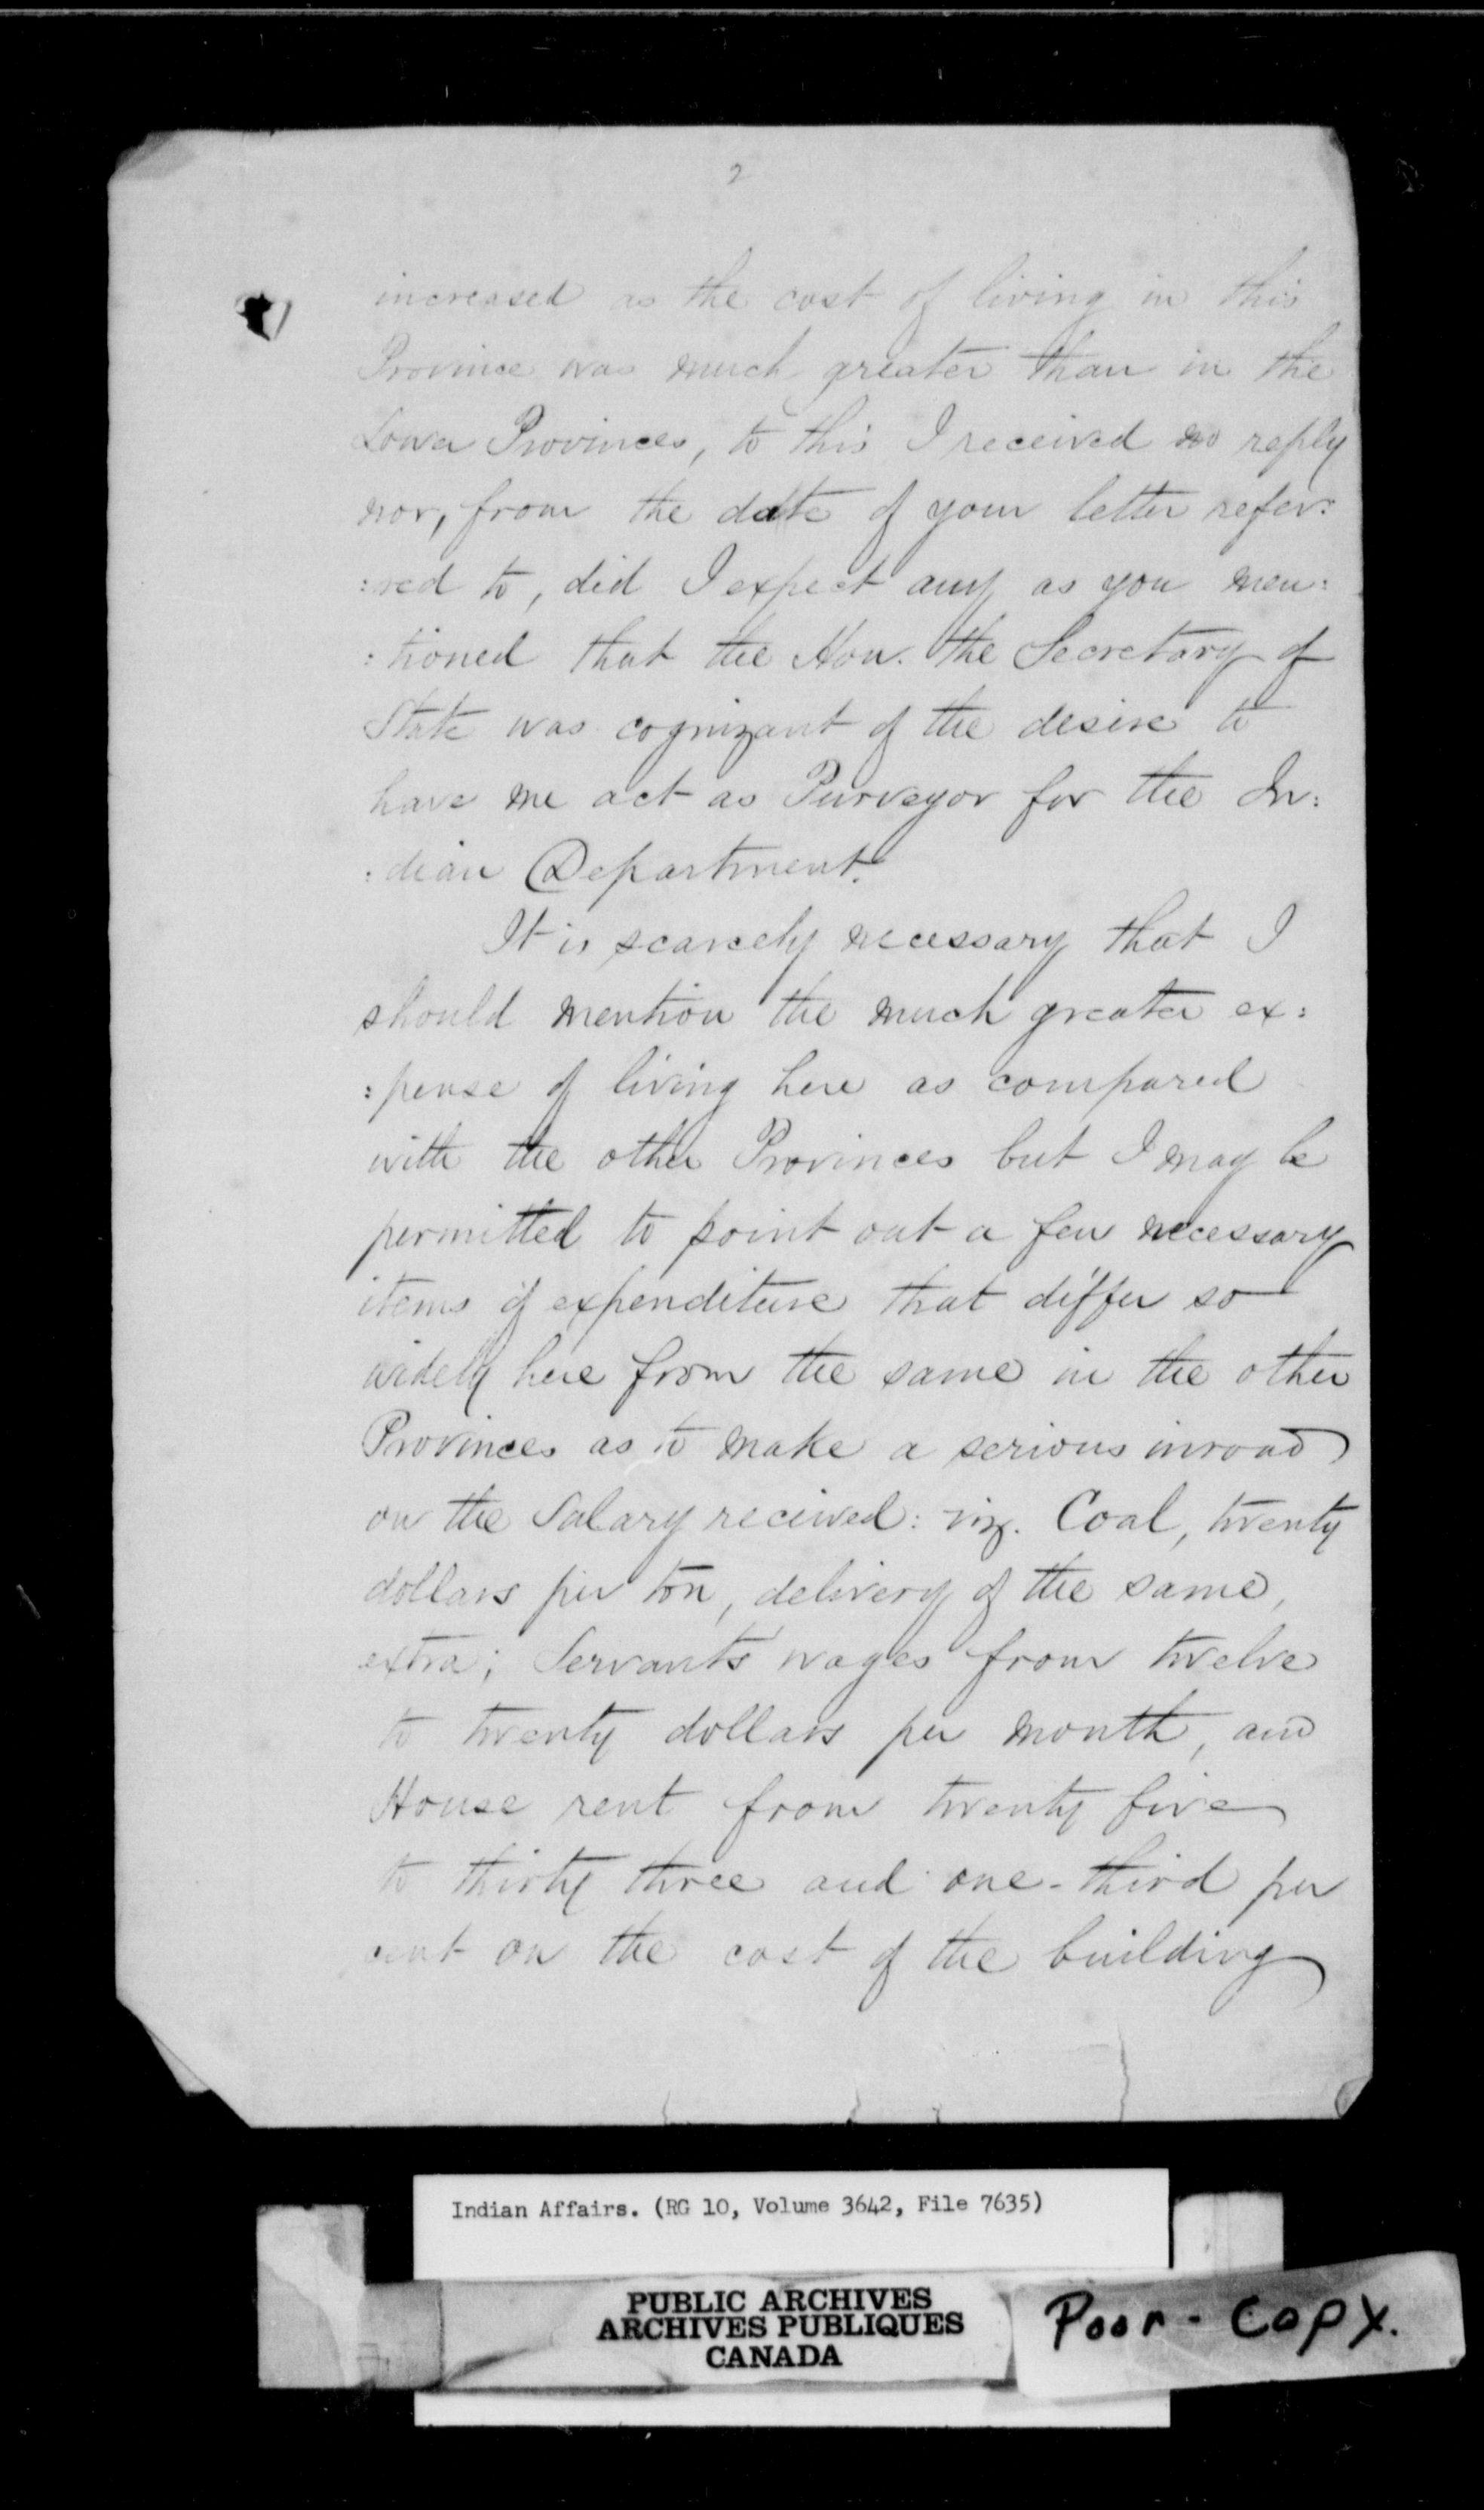 2
increased as the cost of living in this
Province was much greater than in the
Lower Provinces, to this I received no reply
nor, from the date of your letter refer:
:red to, did I expect any as you men:
:tioned that the Hon. the Secretary of
State was cognizant of the desire to
have me act as Purveyor for the In:
:dian Department.
It is scarcely necessary that I
should mention the much greater ex:
:pense of living here as compared
with the other Provinces but I may be
permitted to point out a few necessary
items of expenditure that differ so
widely here from the same in the other
Provinces as to make a serious inroad
on the Salary received: viz. Coal, twenty
dollars per ton, delivery of the same,
extra; Servants wages from twelve
to twenty dollars per month, and
House rent from twenty five
to thirty three and one-third per
cent on the cost of the building
Indian Affairs. (RG 10, Volume 3642, File 7635)
PUBLIC ARCHIVES
ARCHIVES PUBLIQUES
CANADA
Poor-Copy.